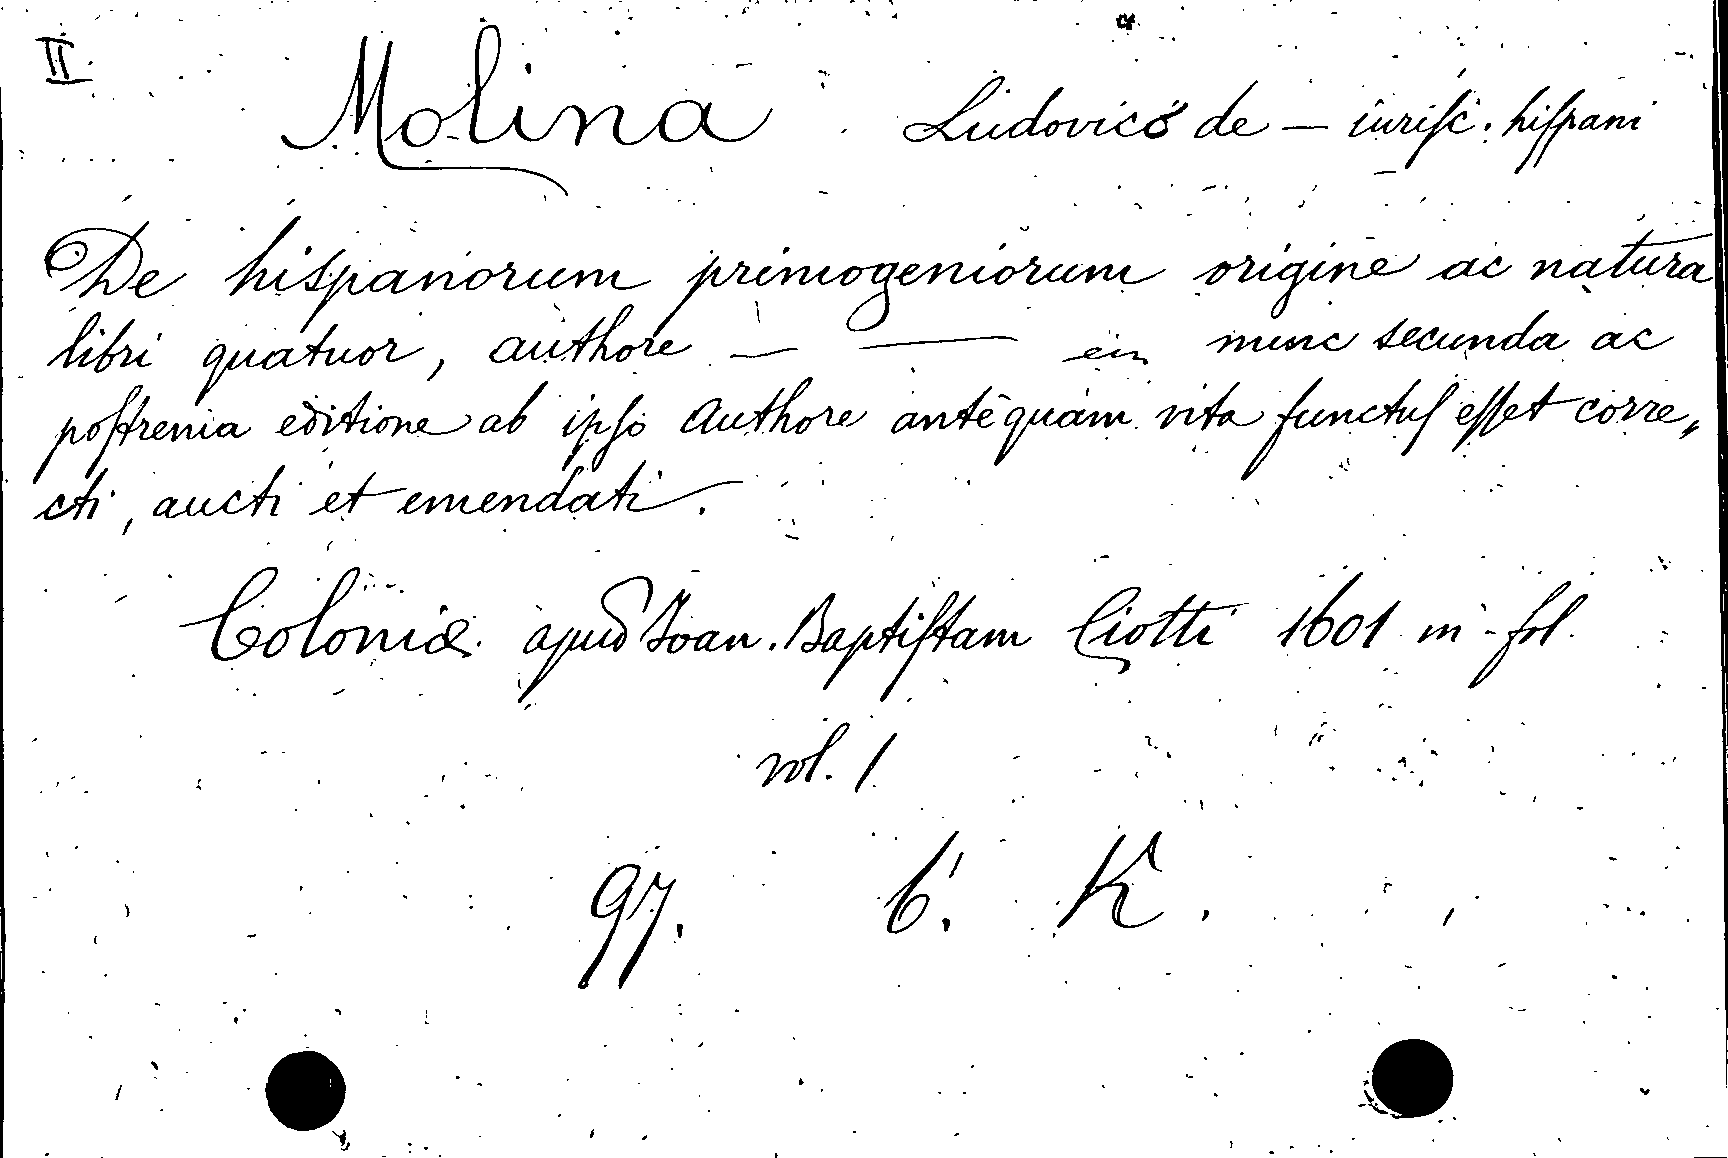 II.
Molina Ludovicó de — iuriſc. hiſpani
De hispanorum primogeniorum origine ac natura
libri quatuor, authore — — nunc secunda ac
poſtrema editione ab ipſo Authore antequàm vita functuſ eſſet corre„
cti, aucti et emendati.
Coloniæ apud Ioan. Baptiſtam Ciotti 1601 in-fol.
vol. 1
97. 6. K.